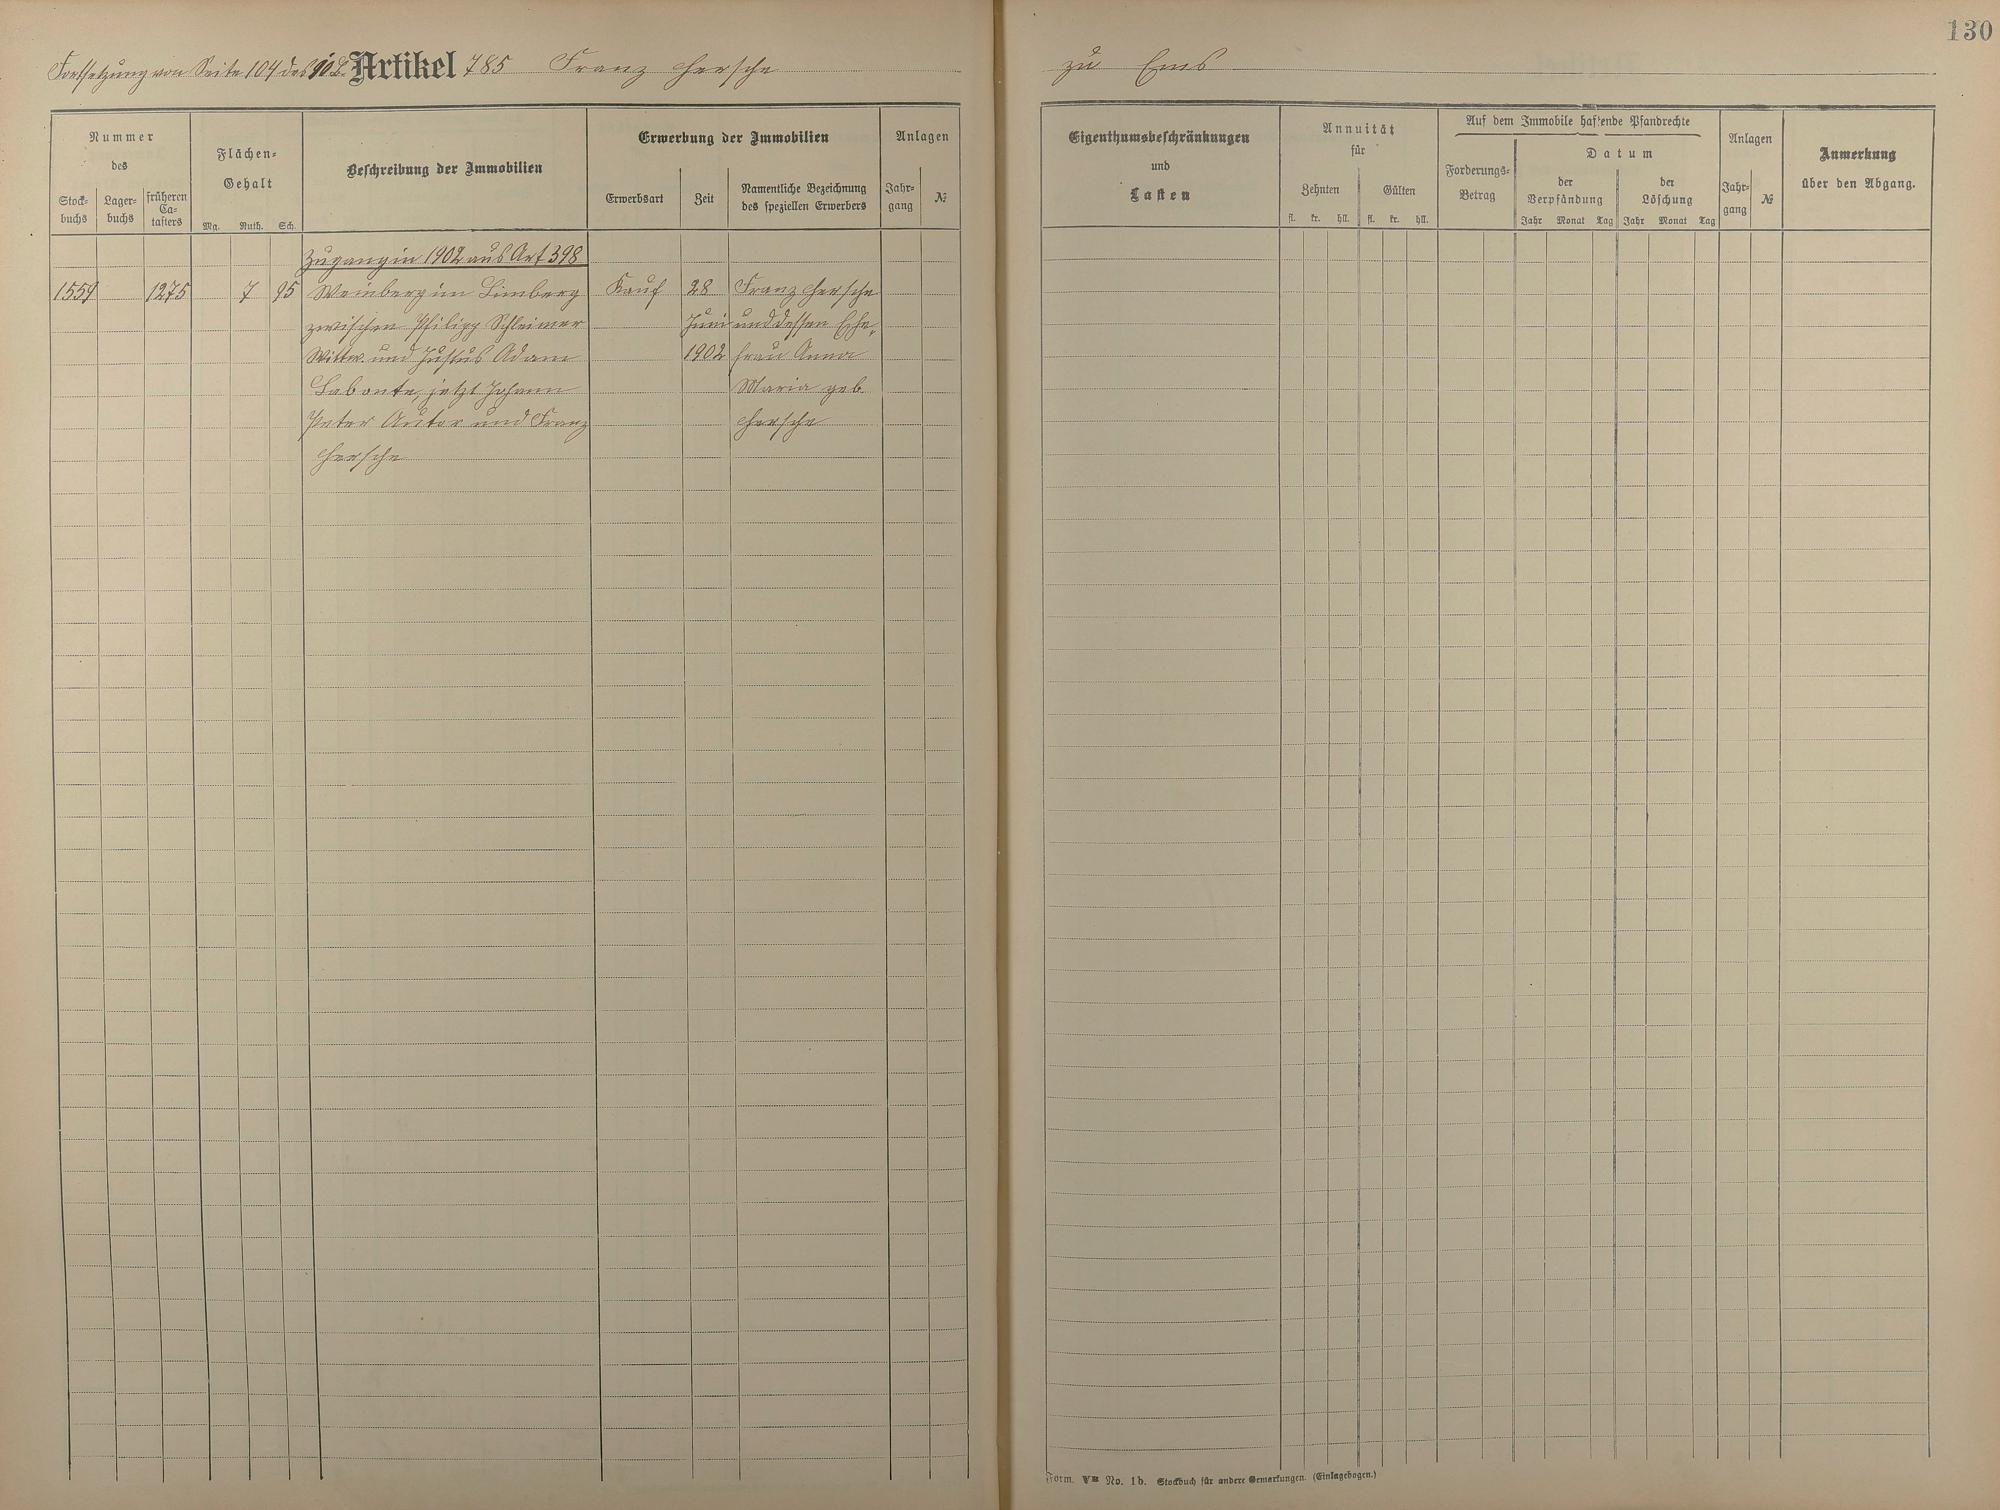 130
Fortsetzung von Seite 104 des 10. B. Artikel 785 Franz Hersche zu Ems
Nummer
des
Stock-
buchs
Lager-
buchs
früheren
Ca-
tasters
Flächen-
Gehalt
Mg. Ruth. Sch.
Beschreibung der Immobilien
Erwerbung der Immobilien
Erwerbsart
Zeit
Namentliche Bezeichnung
des speziellen Erwerbers
Anlagen
Jahr-
gang
№
Eigenthumsbeschränkungen
und
Lasten
Annuität
für
Zehnten
Gülten
fl. kr. hll. fl. kr. hll.
Auf dem Immobile haftende Pfandrechte
Forderungs-
Betrag
Datum
der
Verpfändung
der
Löschung
Jahr Monat Tag Jahr Monat Tag
Anlagen
Jahr-
gang
№
Anmerkung
über den Abgang.
Zugang in 1902 aus Art 398
1559 1275 7 95 Weinberg im Limberg Kauf 28 Franz Hersche
zwischen Philipp Schleimer Juni und dessen Ehe-
Wittw. und Justus Adam 1902 frau Anna
Labonte, jetzt Johann Maria geb.
Peter Autor und Franz Hersche
Hersche
Form. No. 1b. Stockbuch für andere Gemarkungen. (Einlagebogen.)